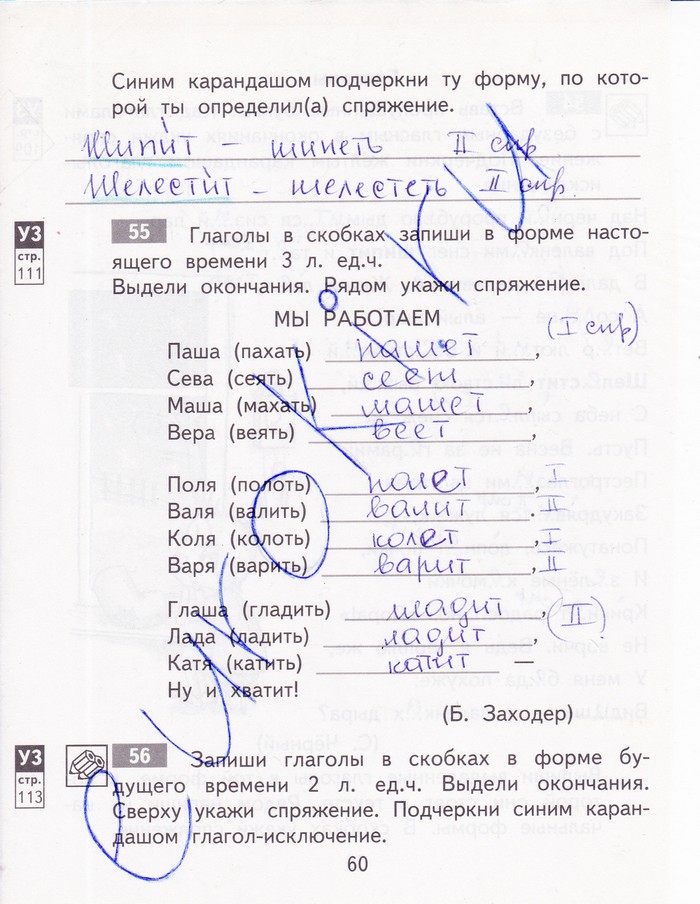 Синим карандашом подчеркни ту форму, по кото-
рой ты определил(а) спряжение.
Шипит – шипеть II спр
Шелестит – шелестеть II спр.
УЗ
стр.
111
55 Глаголы в скобках запиши в форме насто-
ящего времени 3 л. ед.ч.
Выдели окончания. Рядом укажи спряжение.
МЫ РАБОТАЕМ
(I спр)
Паша (пахать) пашет,
Сева (сеять) сеет,
Маша (махать) машет,
Вера (веять) веет,
Поля (полоть) полет, I
Валя (валить) валит. II
Коля (колоть) колет, I
Варя (варить) варит, II
Глаша (гладить) гладит, (II)
Лада (ладить) ладит,
Катя (катить) катит —
Ну и хватит!
(Б. Заходер)
УЗ
стр.
113
56 Запиши глаголы в скобках в форме бу-
дущего времени 2 л. ед.ч. Выдели окончания.
Сверху укажи спряжение. Подчеркни синим каран-
дашом глагол-исключение.
60